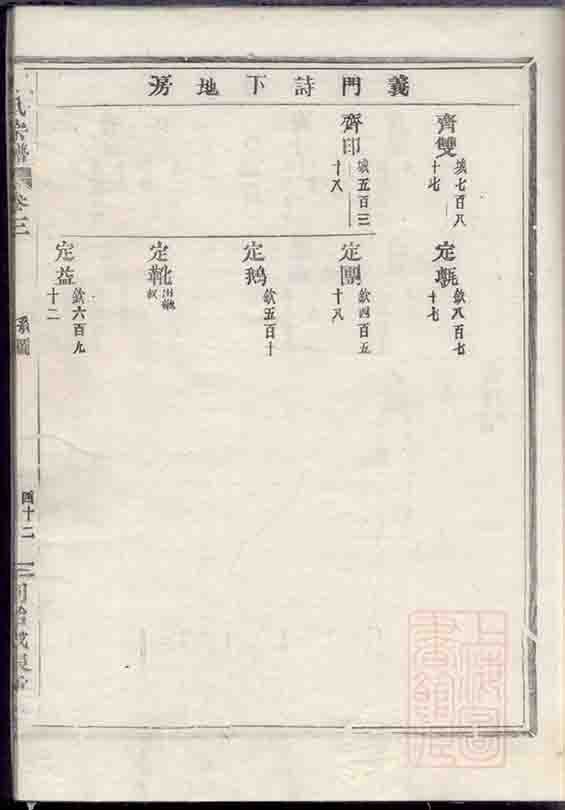 義門詩下地房
齊雙
城七百八
十七
齊印
城五百三
十八
定甎
欽八百七
十七
定團
欽四百五
十八
定鵝
欽五百十
定靴
出繼
定益
欽六百九
十二
氏宗譜
卷三
系圖
四十二
上海圖
書館藏